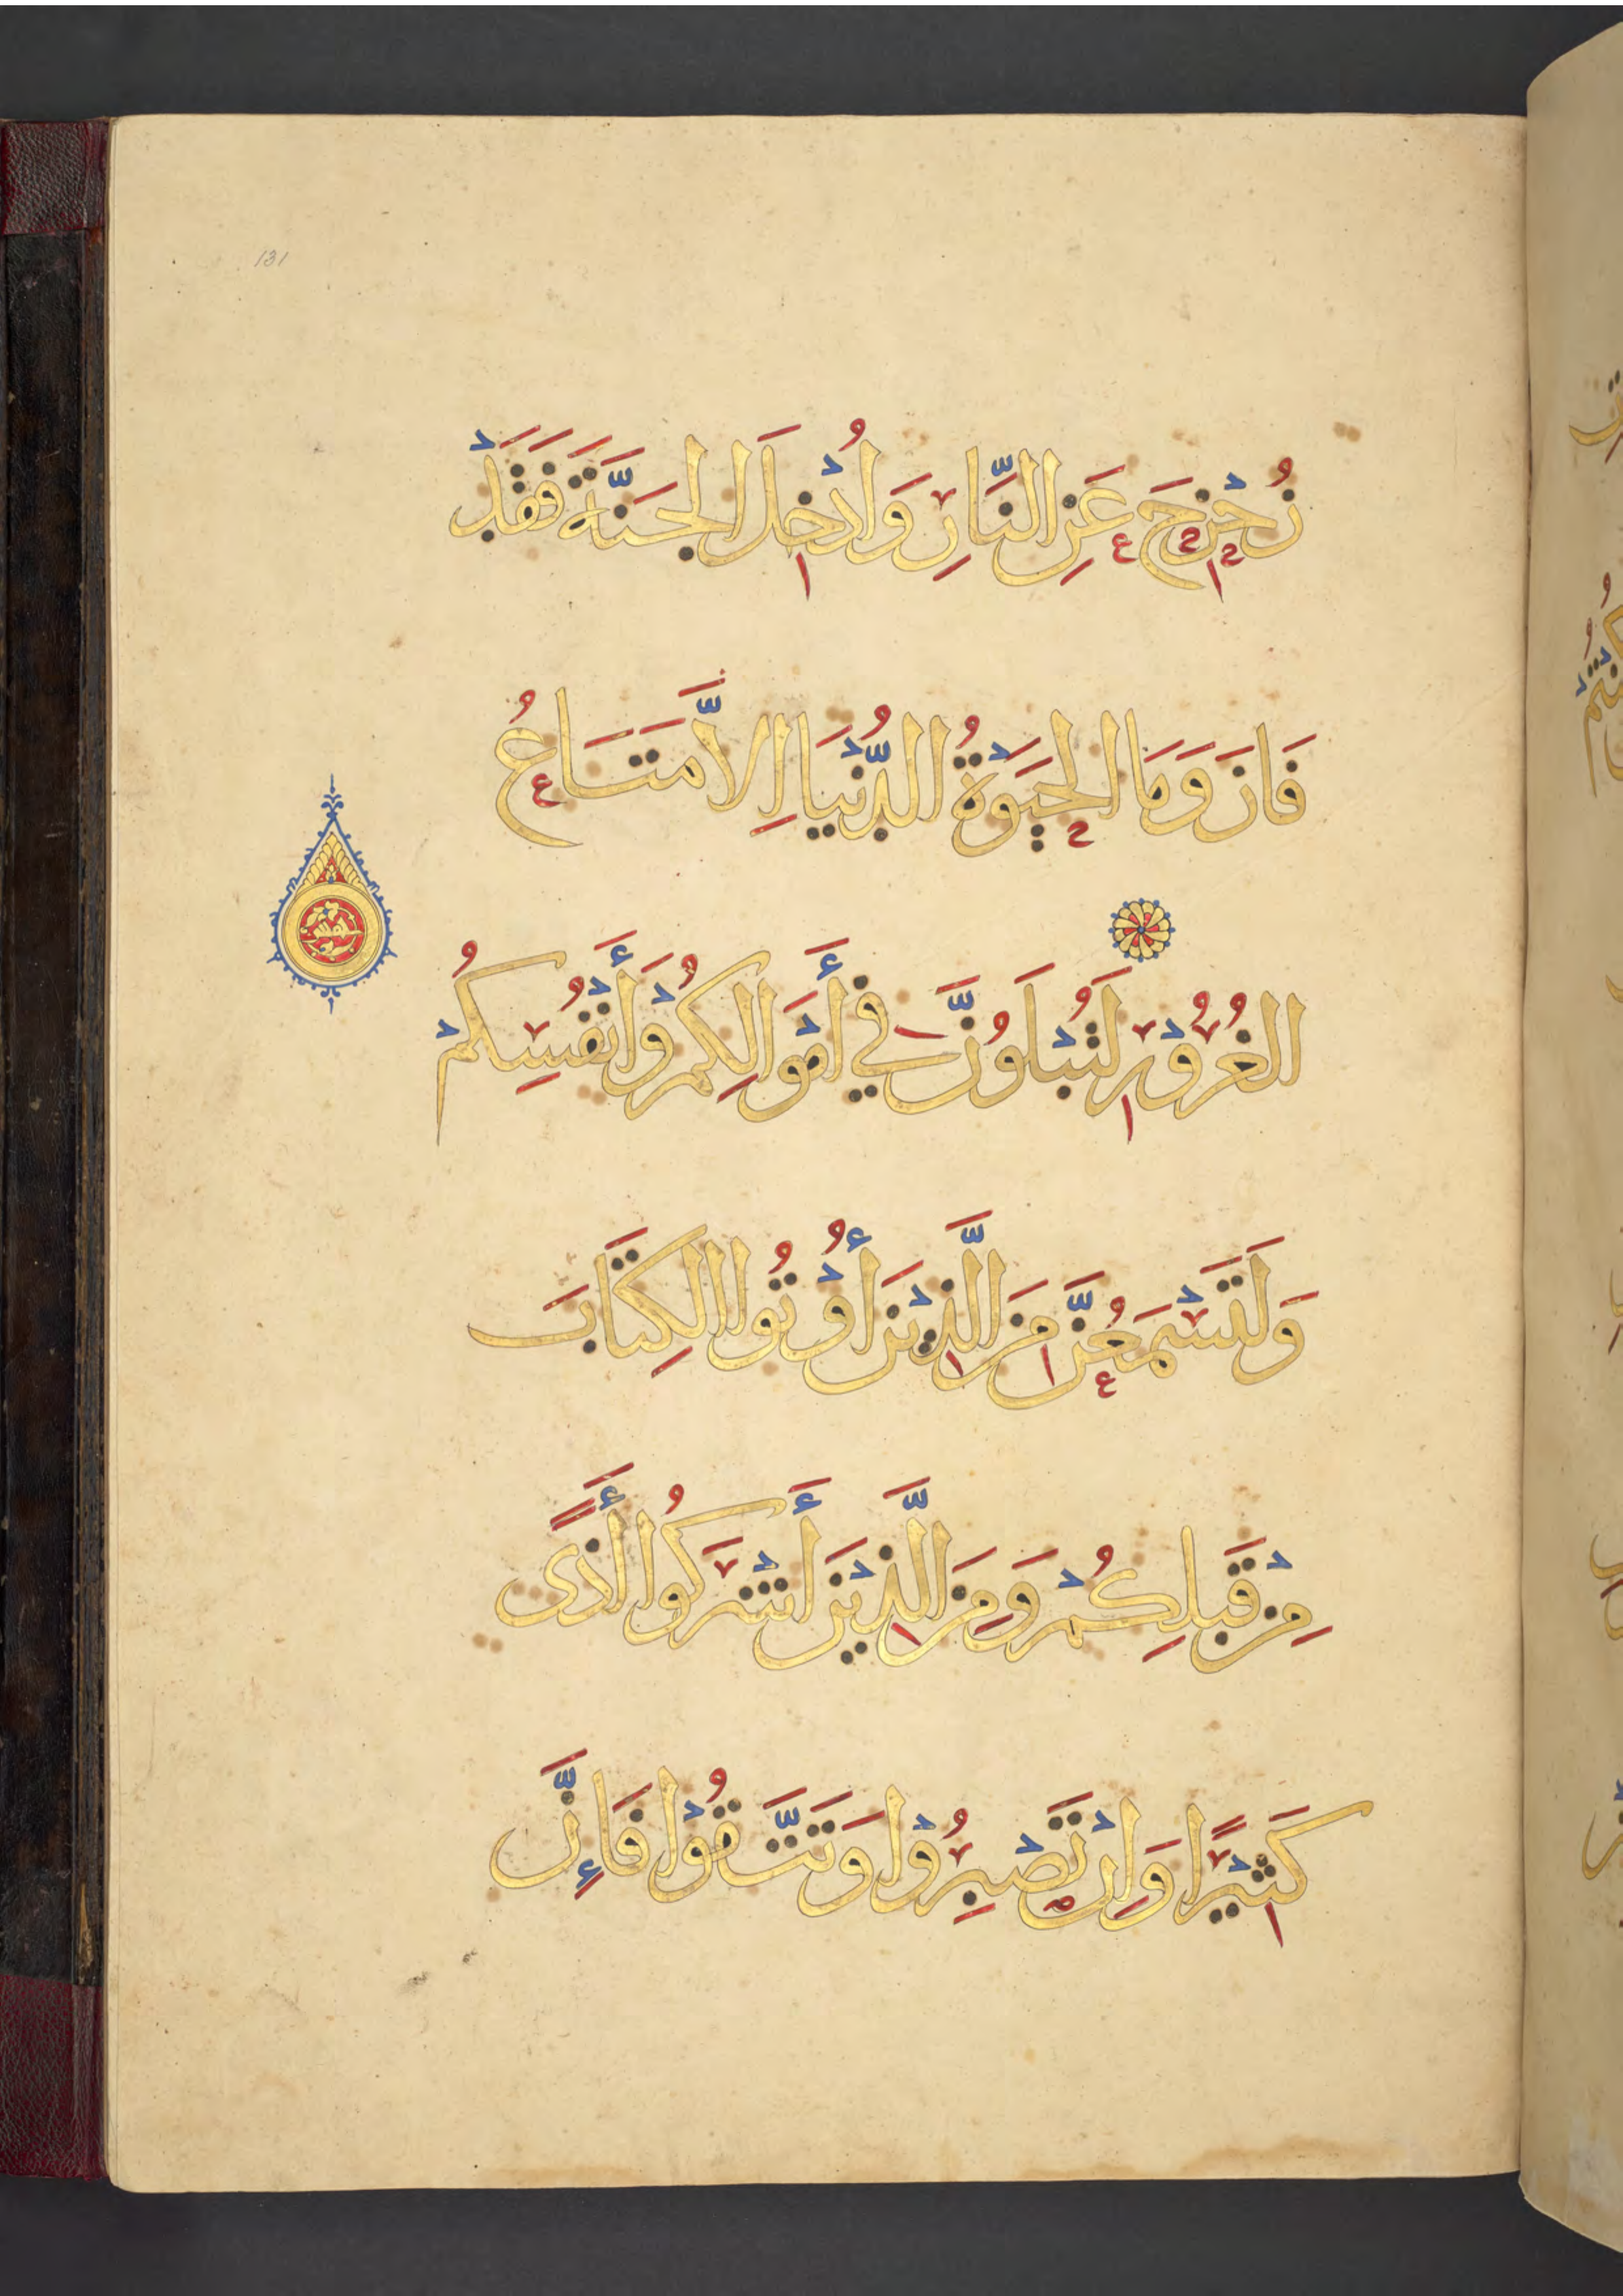 131
زُحْزِحَ عَنِ النَّارِ وَاُدْخِلَ الجَنَّةَ فَقَدْ
فَازَ وَمَا الحَيَوةُ الدُّنْيَا اِلاَّ مَتَاعُ
الغُرُوْرِ لَتُبْلَوُنَّ فِي أَمْوَالِكُمْ وَأَنْفُسِكُمْ
وَلَتَسْمَعُنَّ مِنَ الَّذِيْنَ أُوْتُوا الكِتَابَ
مِنْ قَبلِكُمْ وَمِنَ الَّذِيْنَ أَشْرَكُوا أَذًى
كَثِيْرًا وَاِنْ تَصْبِرُوْا وَتَتَّقُوْا فَإِنَّ